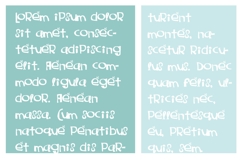 Lorem ipsum dolor
sit amet, consec-
tetuer adipiscing
elit. Aenean com-
modo ligula eget
dolor. Aenean
massa. Cum sociis
natoque penatibus
et magnis dis par-
turient
montes, na-
scetur ridicu-
lus mus. Donec
quam felis, ul-
tricies nec,
pellentesque
eu, pretium
quis, sem.